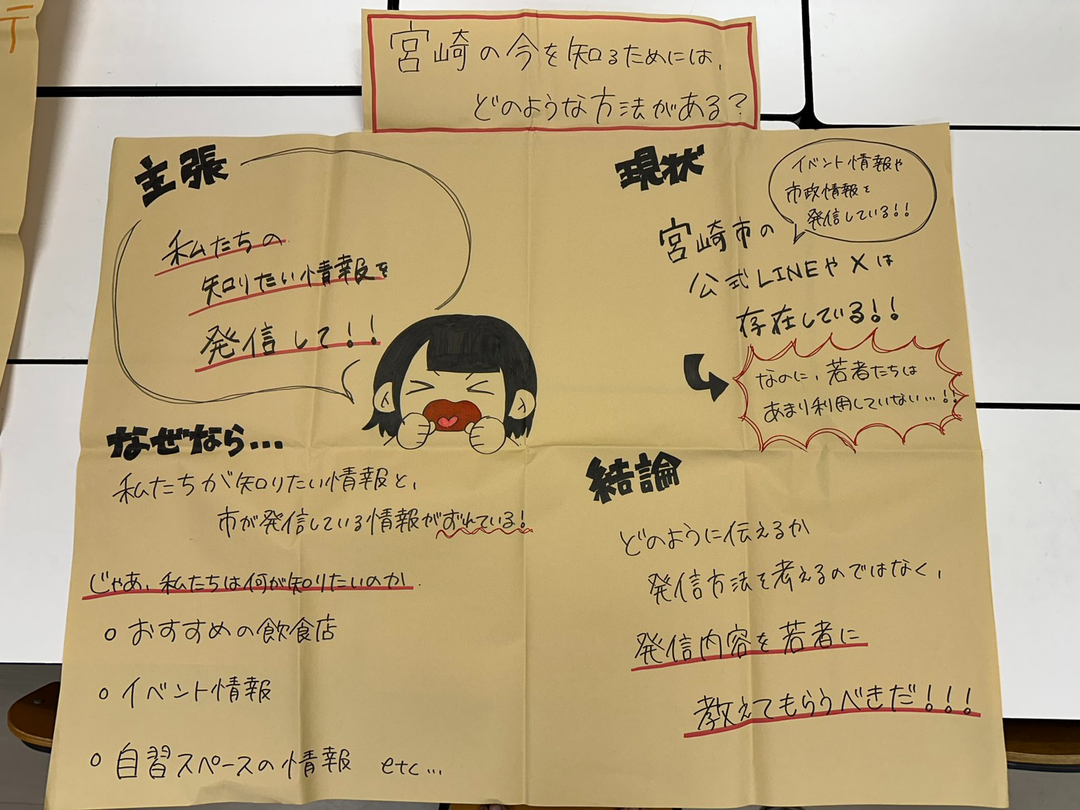 宮崎の今を知るためには、
どのような方法がある?
主張
私たちの
知りたい情報を
発信して!!
なぜなら…
私たちが知りたい情報と、
市が発信している情報がずれている!
じゃあ、私たちは何が知りたいのか
○ おすすめの飲食店
○ イベント情報
○ 自習スペースの情報 etc…
現状
イベント情報や
市政情報を
発信している!!
宮崎市の
公式LINEや X は
存在している!!
なのに、若者たちは
あまり利用していない…!!
結論
どのように伝えるか
発信方法を考えるのではなく、
発信内容を若者に
教えてもらうべきだ!!!
テ